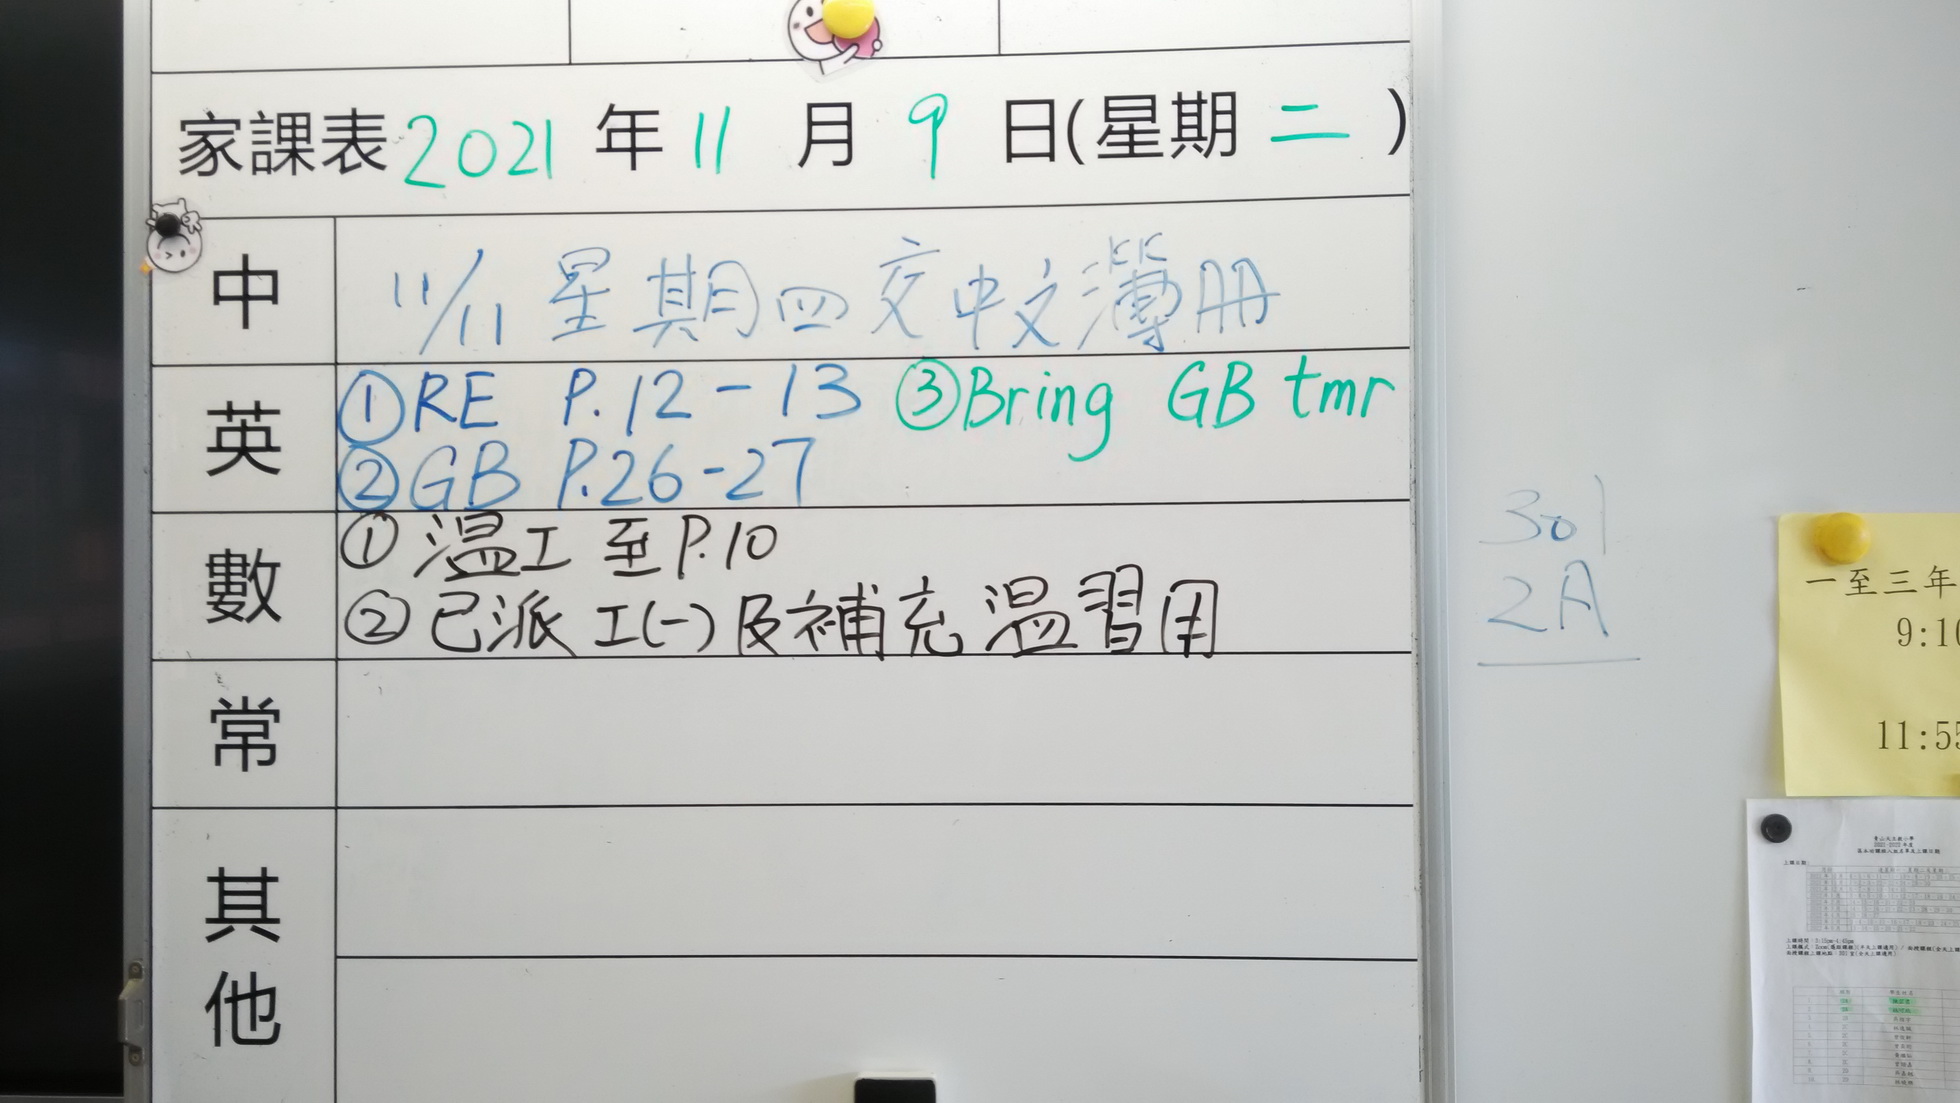 家課表 2021 年 11 月 9 日(星期 二 )
中
11/11 星期四交中文簿册
英
①RE P.12-13 ③Bring GB tmr
②GB P.26-27
數
① 温工 至P.10
② 已派 工(一)及補充温習用
常
其他
301
2A
一至三年
9:10
11:55